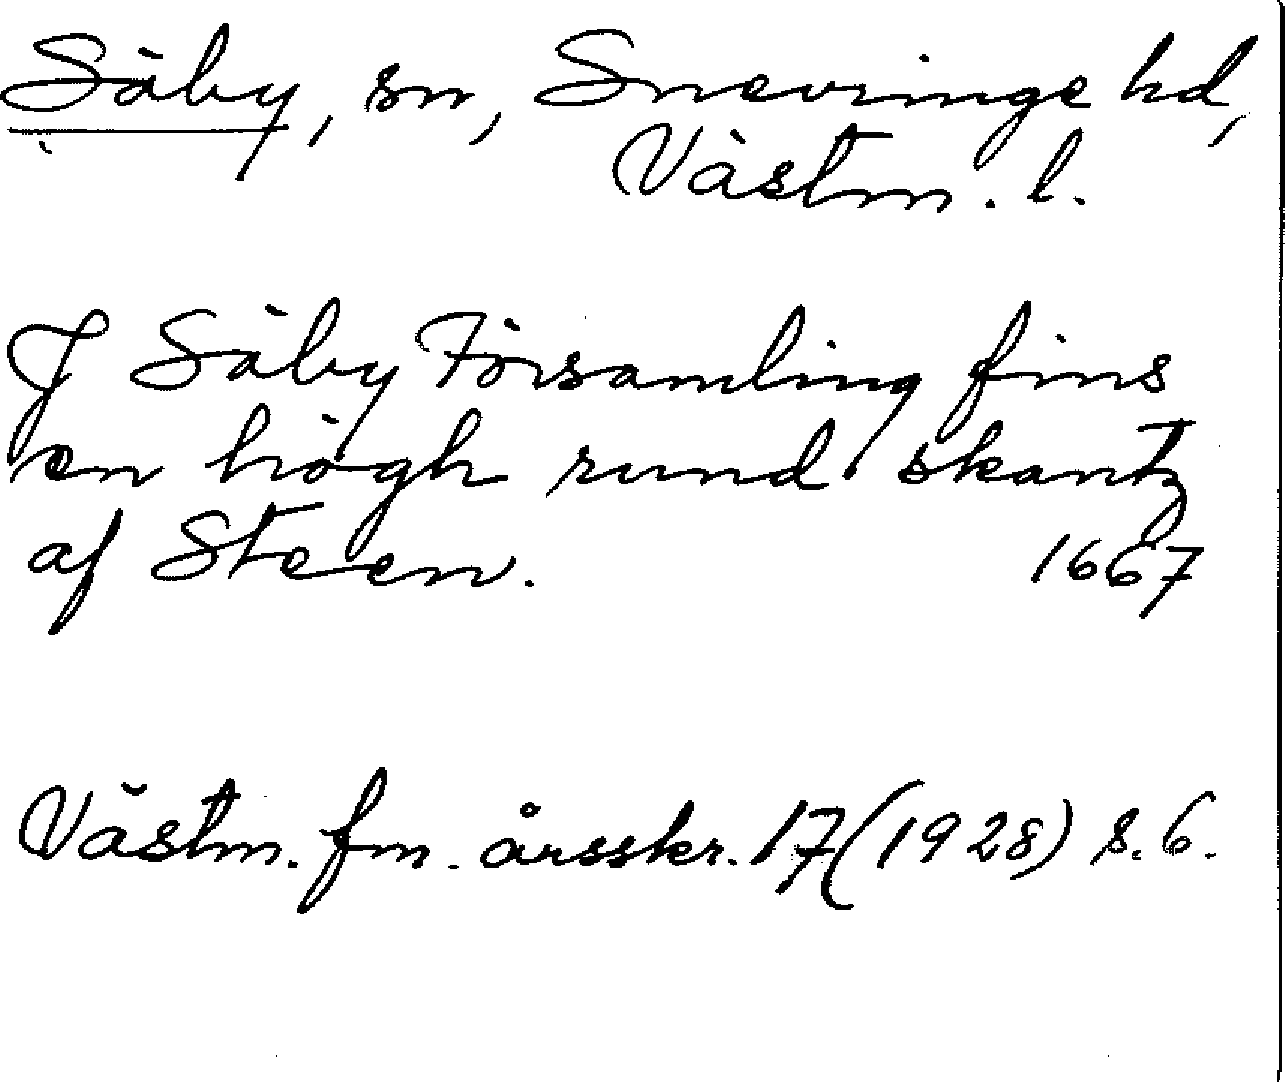 Säby, sn, Snevringe hd,
Västm. l.
J Säby Församling fins
en högh rund skantz
af Steen. 1667
Västm. fm. årsskr. 17 (1928) s. 6.